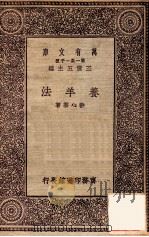 萬有文庫
第一集一千種
王雲五主編
養羊法
商務印書館發行